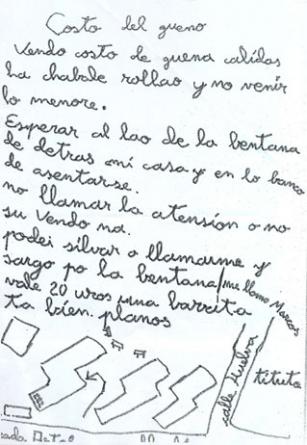 Costo del gueno
Vendo costo de guena calidas
ha chabale rollao y no venir
lo menore.
Esperar al lao de la bentana
de detras mi casa y en lo banco
de asentarse.
no llamar la atensión o no
su vendo na.
podei silvar o llamarme y
sargo po la bentana/me llamo Marcos
vale 20 uros una barrita
ta bien. planos
calle Huelva
tituta